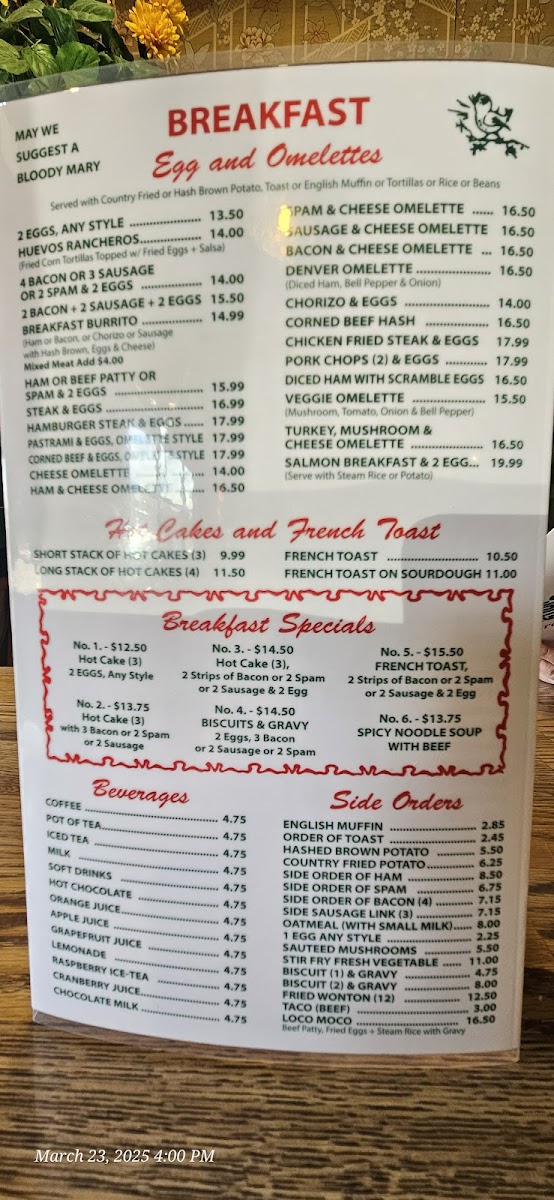 MAY WE
SUGGEST A
BLOODY MARY
BREAKFAST
Egg and Omelettes
Served with Country Fried or Hash Brown Potato, Toast or English Muffin or Tortillas or Rice or Beans
2 EGGS, ANY STYLE 13.50
HUEVOS RANCHEROS 14.00
(Fried Corn Tortillas Topped w/ Fried Eggs + Salsa)
4 BACON OR 3 SAUSAGE
OR 2 SPAM & 2 EGGS 14.00
2 BACON + 2 SAUSAGE + 2 EGGS 15.50
BREAKFAST BURRITO 14.99
(Ham or Bacon, or Chorizo or Sausage
with Hash Brown, Eggs & Cheese)
Mixed Meat Add $4.00
HAM OR BEEF PATTY OR
SPAM & 2 EGGS 15.99
STEAK & EGGS 16.99
HAMBURGER STEAK & EGGS 17.99
PASTRAMI & EGGS, OMELETTE STYLE 17.99
CORNED BEEF & EGGS, OMELETTE STYLE 17.99
CHEESE OMELETTE 14.00
HAM & CHEESE OMELETTE 16.50
SPAM & CHEESE OMELETTE 16.50
SAUSAGE & CHEESE OMELETTE 16.50
BACON & CHEESE OMELETTE 16.50
DENVER OMELETTE 16.50
(Diced Ham, Bell Pepper & Onion)
CHORIZO & EGGS 14.00
CORNED BEEF HASH 16.50
CHICKEN FRIED STEAK & EGGS 17.99
PORK CHOPS (2) & EGGS 17.99
DICED HAM WITH SCRAMBLE EGGS 16.50
VEGGIE OMELETTE 15.50
(Mushroom, Tomato, Onion & Bell Pepper)
TURKEY, MUSHROOM &
CHEESE OMELETTE 16.50
SALMON BREAKFAST & 2 EGG... 19.99
(Serve with Steam Rice or Potato)
Hot Cakes and French Toast
SHORT STACK OF HOT CAKES (3) 9.99
LONG STACK OF HOT CAKES (4) 11.50
FRENCH TOAST 10.50
FRENCH TOAST ON SOURDOUGH 11.00
Breakfast Specials
No. 1. - $12.50
Hot Cake (3)
2 EGGS, Any Style
No. 2. - $13.75
Hot Cake (3)
with 3 Bacon or 2 Spam
or 2 Sausage
No. 3. - $14.50
Hot Cake (3),
2 Strips of Bacon or 2 Spam
or 2 Sausage & 2 Egg
No. 4. - $14.50
BISCUITS & GRAVY
2 Eggs, 3 Bacon
or 2 Sausage or 2 Spam
No. 5. - $15.50
FRENCH TOAST,
2 Strips of Bacon or 2 Spam
or 2 Sausage & 2 Egg
No. 6. - $13.75
SPICY NOODLE SOUP
WITH BEEF
Beverages
COFFEE 4.75
POT OF TEA 4.75
ICED TEA 4.75
MILK 4.75
SOFT DRINKS 4.75
HOT CHOCOLATE 4.75
ORANGE JUICE 4.75
APPLE JUICE 4.75
GRAPEFRUIT JUICE 4.75
LEMONADE 4.75
RASPBERRY ICE-TEA 4.75
CRANBERRY JUICE 4.75
CHOCOLATE MILK 4.75
Side Orders
ENGLISH MUFFIN 2.85
ORDER OF TOAST 2.45
HASHED BROWN POTATO 5.50
COUNTRY FRIED POTATO 6.25
SIDE ORDER OF HAM 8.50
SIDE ORDER OF SPAM 6.75
SIDE ORDER OF BACON (4) 7.15
SIDE SAUSAGE LINK (3) 7.15
OATMEAL (WITH SMALL MILK) 8.00
1 EGG ANY STYLE 2.25
SAUTEED MUSHROOMS 5.50
STIR FRY FRESH VEGETABLE 11.00
BISCUIT (1) & GRAVY 4.75
BISCUIT (2) & GRAVY 8.00
FRIED WONTON (12) 12.50
TACO (BEEF) 3.00
LOCO MOCO 16.50
Beef Patty, Fried Eggs + Steam Rice with Gravy
March 23, 2025 4:00 PM